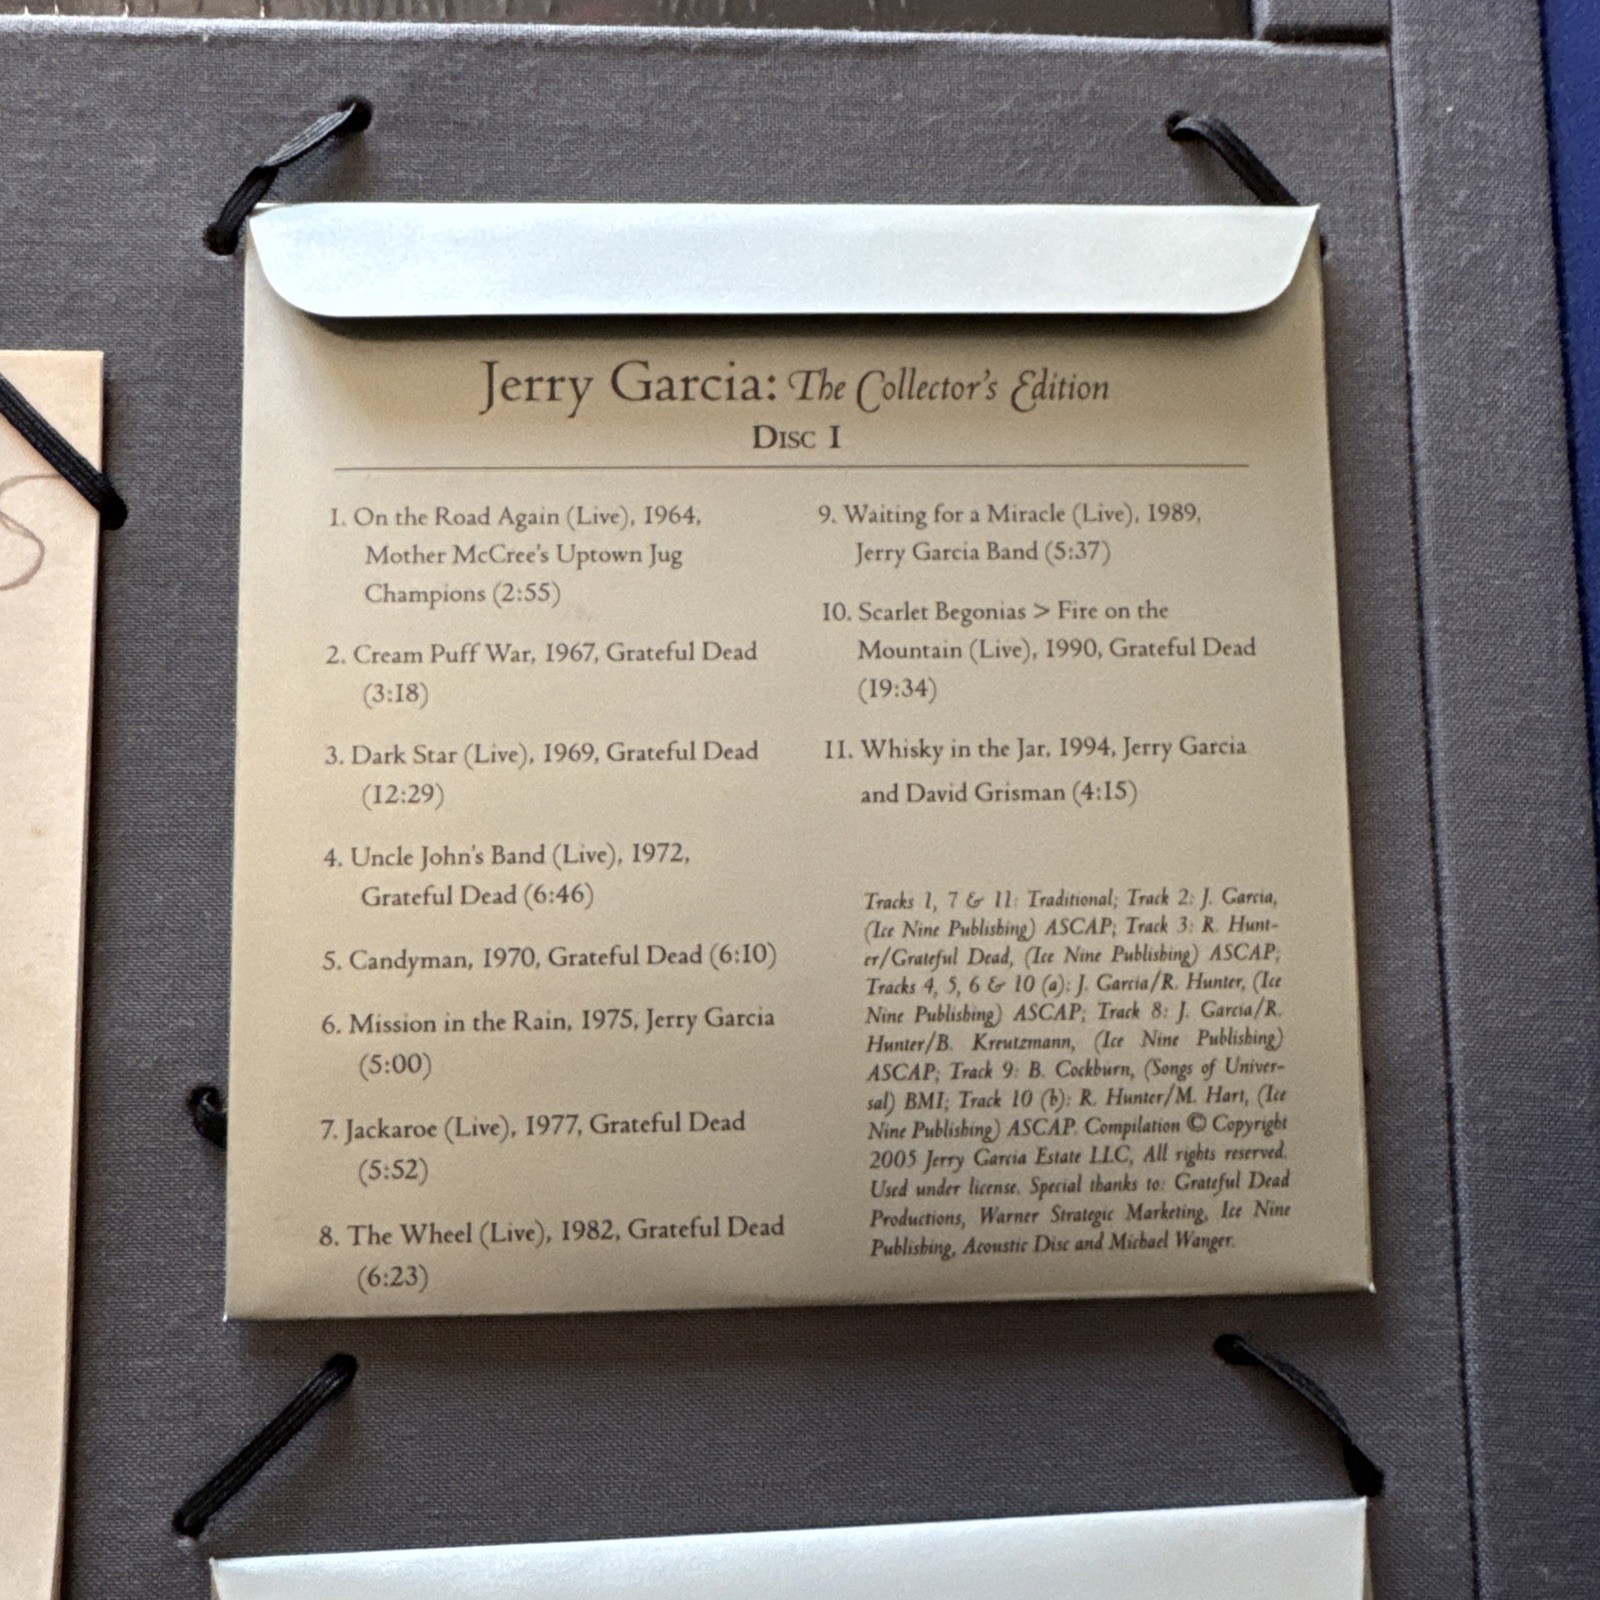 Jerry Garcia: The Collector's Edition
Disc 1
1. On the Road Again (Live), 1964,
Mother McCree's Uptown Jug
Champions (2:55)
2. Cream Puff War, 1967, Grateful Dead
(3:18)
3. Dark Star (Live), 1969, Grateful Dead
(12:29)
4. Uncle John's Band (Live), 1972,
Grateful Dead (6:46)
5. Candyman, 1970, Grateful Dead (6:10)
6. Mission in the Rain, 1975, Jerry Garcia
(5:00)
7. Jackaroe (Live), 1977, Grateful Dead
(5:52)
8. The Wheel (Live), 1982, Grateful Dead
(6:23)
9. Waiting for a Miracle (Live), 1989,
Jerry Garcia Band (5:37)
10. Scarlet Begonias > Fire on the
Mountain (Live), 1990, Grateful Dead
(19:34)
11. Whisky in the Jar, 1994, Jerry Garcia
and David Grisman (4:15)
Tracks 1, 7 & 11: Traditional; Track 2: J. Garcia,
(Ice Nine Publishing) ASCAP; Track 3: R. Hunt-
er/Grateful Dead, (Ice Nine Publishing) ASCAP;
Tracks 4, 5, 6 & 10 (a): J. Garcia/R. Hunter, (Ice
Nine Publishing) ASCAP; Track 8: J. Garcia/R.
Hunter/B. Kreutzmann, (Ice Nine Publishing)
ASCAP; Track 9: B. Cockburn, (Songs of Univer-
sal) BMI; Track 10 (b): R. Hunter/M. Hart, (Ice
Nine Publishing) ASCAP. Compilation © Copyright
2005 Jerry Garcia Estate LLC, All rights reserved.
Used under license. Special thanks to: Grateful Dead
Productions, Warner Strategic Marketing, Ice Nine
Publishing, Acoustic Disc and Michael Wanger.